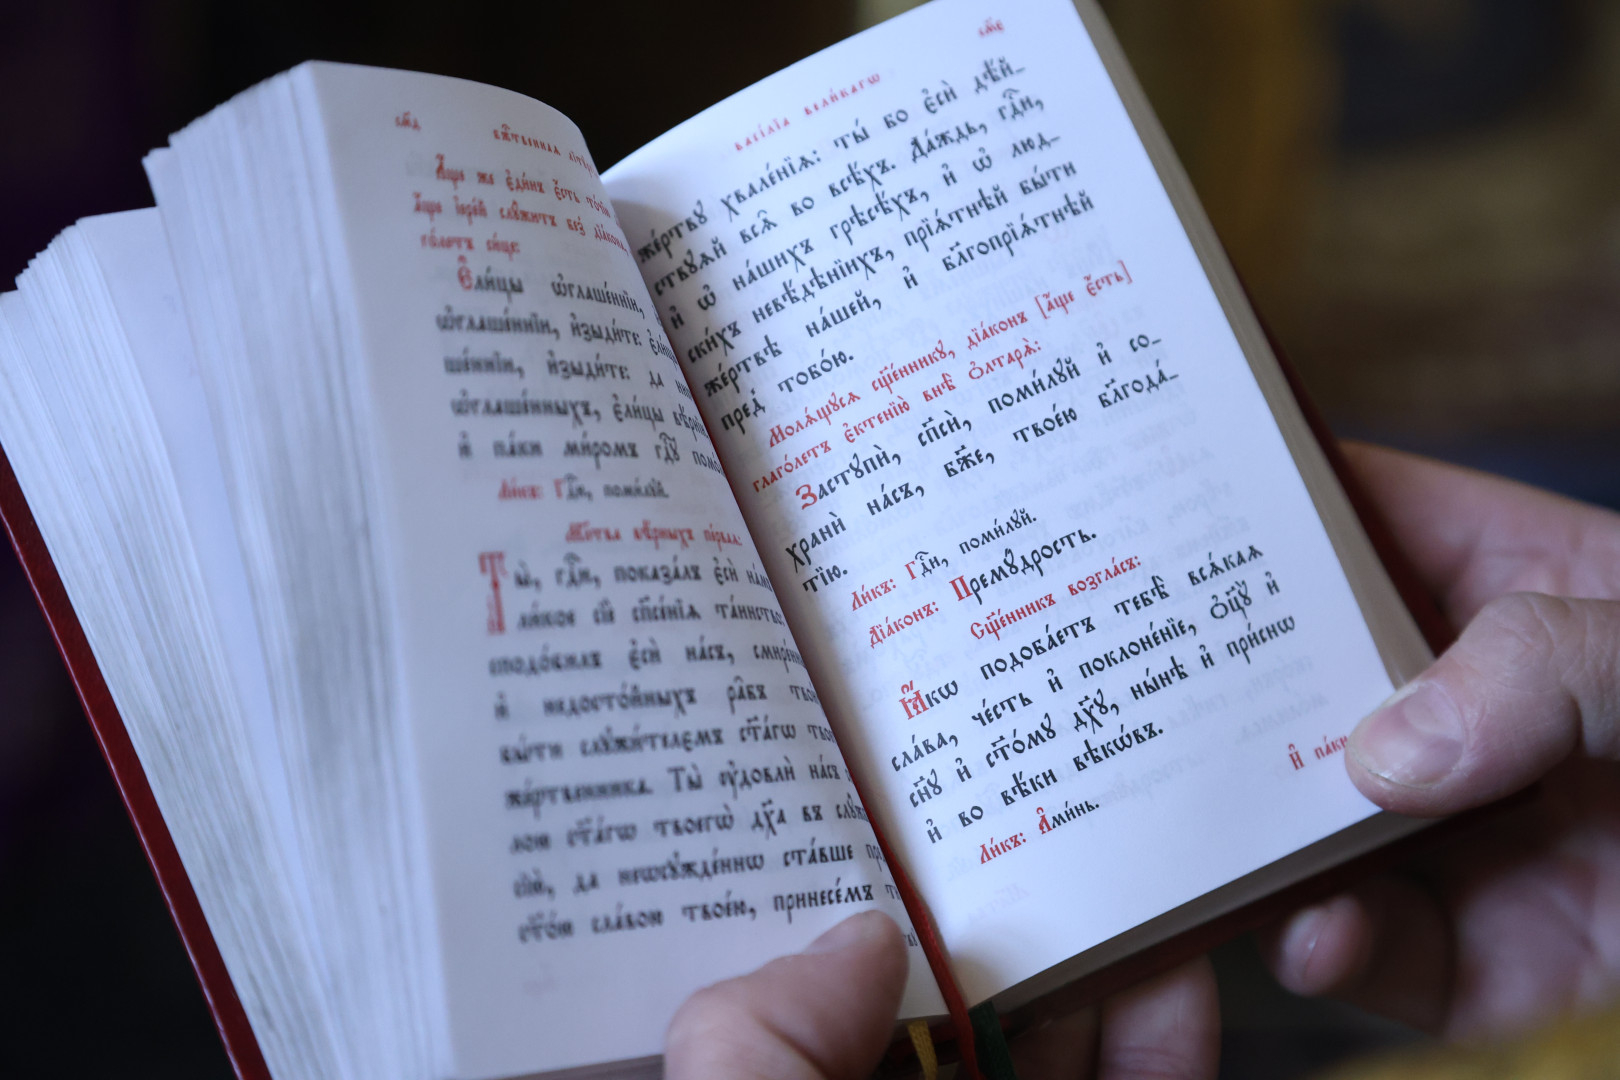 см҃д
бж҇твеннаѧ
А҆́ще же є҆ди́нъ є҆́сть то́чїю
а҆́ще і҆ере́й слꙋ́житъ без̾ дїа́кона,
го́летъ си́це:
Є҆ли́цы ѡ҆глаше́ннїи,
ѡ҆глаше́ннїи, и҆зыди́те: є҆ли́цы
ше́ннїи, и҆зыди́те: да
ѡ҆глаше́нныхъ, є҆ли́цы вѣ́рнїи
и҆ па́ки ми́ромъ гдⷭ҇ꙋ
Ли́къ: Гдⷭ҇и, поми́лꙋй.
Мл҃тва вѣ́рныхъ пе́рваѧ:
Ты̀, гдⷭ҇и, показа́лъ є҆сѝ на́мъ
ли́кое сїѐ сп҃се́нїѧ та́инство:
сподо́билъ є҆сѝ на́съ, смире́нныхъ
и҆ недосто́йныхъ ра̑бъ
бы́ти слꙋжи́телємъ ст҃а́гѡ
же́ртвенника. Ты̀ ᲂу҆довлѝ на́съ
лою ст҃а́гѡ твоегѡ̀ дх҃а въ
сїю̀, да неѡсꙋжде́ннѡ ста́вше
ст҃о́ю сла́вою твое́ю, принесе́мъ
см҃е
васі́лїа вели́кагѡ
же́ртвꙋ хвале́нїѧ: ты́ бо є҆сѝ дѣ́й-
ствꙋѧй всѧ̑ во всѣ́хъ. Да́ждь, гдⷭ҇и,
и҆ ѡ҆ на́шихъ грѣсѣ́хъ, и҆ ѡ҆ люд-
ски́хъ невѣ́дѣнїихъ, прїѧ́тнѣй бы́ти
же́ртвѣ на́шей, и҆ бл҃гопрїѧ́тнѣй
пред̾ тобо́ю.
Молѧ́щꙋсѧ сщ҃е́нникꙋ, дїа́конъ [а҆́ще є҆́сть]
глаго́летъ є҆ктенїю̀ внѣ̀ ѻ҆лтарѧ̀:
Застꙋпѝ, сп҃сѝ, поми́лꙋй и҆ со-
хранѝ на́съ, бж҃е, твое́ю бл҃года́-
тїю.
Ли́къ: Гдⷭ҇и, поми́лꙋй.
Дїа́конъ: Премꙋ́дрость.
Сщ҃е́нникъ возгла́съ:
Ꙗ҆́кѡ подоба́етъ тебѣ̀ всѧ́каѧ
сла́ва, че́сть и҆ поклоне́нїе, ѻ҆ц҃ꙋ̀ и҆
сн҃ꙋ и҆ ст҃о́мꙋ дх҃ꙋ, ны́нѣ и҆ при́снѡ
и҆ во вѣ́ки вѣкѡ́въ.
Ли́къ: А҆ми́нь.
И҆ па́ки